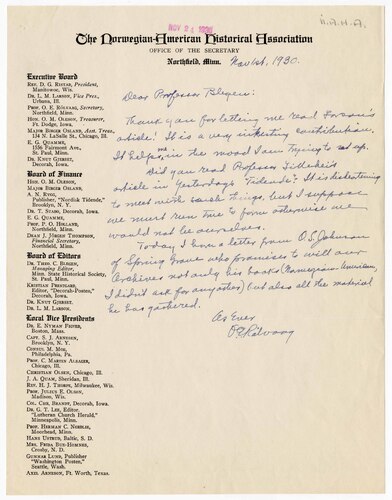 N.A.H.A.
NOV 24 1930
The Norwegian-American Historical Association
OFFICE OF THE SECRETARY
Northfield, Minn.
Nov 1st, 1930.
Executive Board
REV. D. G. RISTAD, President,
Manitowoc, Wis.
DR. L. M. LARSON, Vice Pres.,
Urbana, Ill.
PROF. O. E. RÖLVAAG, Secretary,
Northfield, Minn.
HON. O. M. OLESON, Treasurer,
Ft. Dodge, Iowa.
MAJOR BIRGER OSLAND, Asst. Treas.
134 N. LaSalle St., Chicago, Ill.
E. G. QUAMME,
1586 Fairmont Ave.,
St. Paul, Minn.
DR. KNUT GJERSET,
Decorah, Iowa.
Board of Finance
HON. O. M. OLESON,
MAJOR BIRGER OSLAND,
A. N. RYGG,
Publisher, "Nordisk Tidende"
Brooklyn, N. Y.
DR. T. STABO, Decorah, Iowa.
E. G. QUAMME,
St. Paul, Minn.
PROF. P. O. HOLLAND,
Northfield, Minn.
DEAN J. JÖRGEN THOMPSON,
Financial Secretary,
Northfield, Minn.
Board of Editors
DR. THEO. C. BLEGEN,
Managing Editor,
Minn. State Historical Society,
St. Paul, Minn.
KRISTIAN PRESTGARD,
Editor, "Decorah-Posten,"
Decorah, Iowa.
DR. KNUT GJERSET,
DR. L. M. LARSON.
Local Vice Presidents
DR. E. NYMAN FIGVED,
Boston, Mass.
CAPT. S. J. ARNESEN,
Brooklyn, N. Y.
CONSUL M. MOE,
Philadelphia, Pa.
PROF. C. MARTIN ALSAGER,
Chicago, Ill.
CHRISTIAN OLSEN, Chicago, Ill.
J. A. QUAM, Sheridan, Ill.
REV. H. J. THORPE, Milwaukee, Wis.
PROF. JULIUS E. OLSON,
Madison, Wis.
COL. CHR. BRANDT, Decorah, Iowa.
DR. G. T. LEE, Editor,
"Lutheran Church Herald,"
Minneapolis, Minn.
PROF. HERMAN C. NORDLIE,
Moorhead, Minn.
HANS USTRUD, Baltic, S. D.
MRS. FRIDA BUE-HOMNES,
Crosby, N. D.
GUNNAR LUND, Publisher
"Washington Posten,"
Seattle, Wash.
AXEL ARNESON, Ft. Worth, Texas.
Dear Professor Blegen:
Thank you for letting me read Larson's
article! It is a very interesting contribution.
It helps me in the mood I am trying to set up.
Did you read Professor
article in yesterday's Tidende? It is disheartening
to meet with such things, but I suppose
we must run true to form otherwise we
would not be ourselves.
Today I have a letter from O. S. Johnson
of Spring Grove who promises to will our
Archives not only his books (Norwegian-American,
I didn't ask for any other) but also all the material
he has gathered!
As Ever
O E Rölvaag